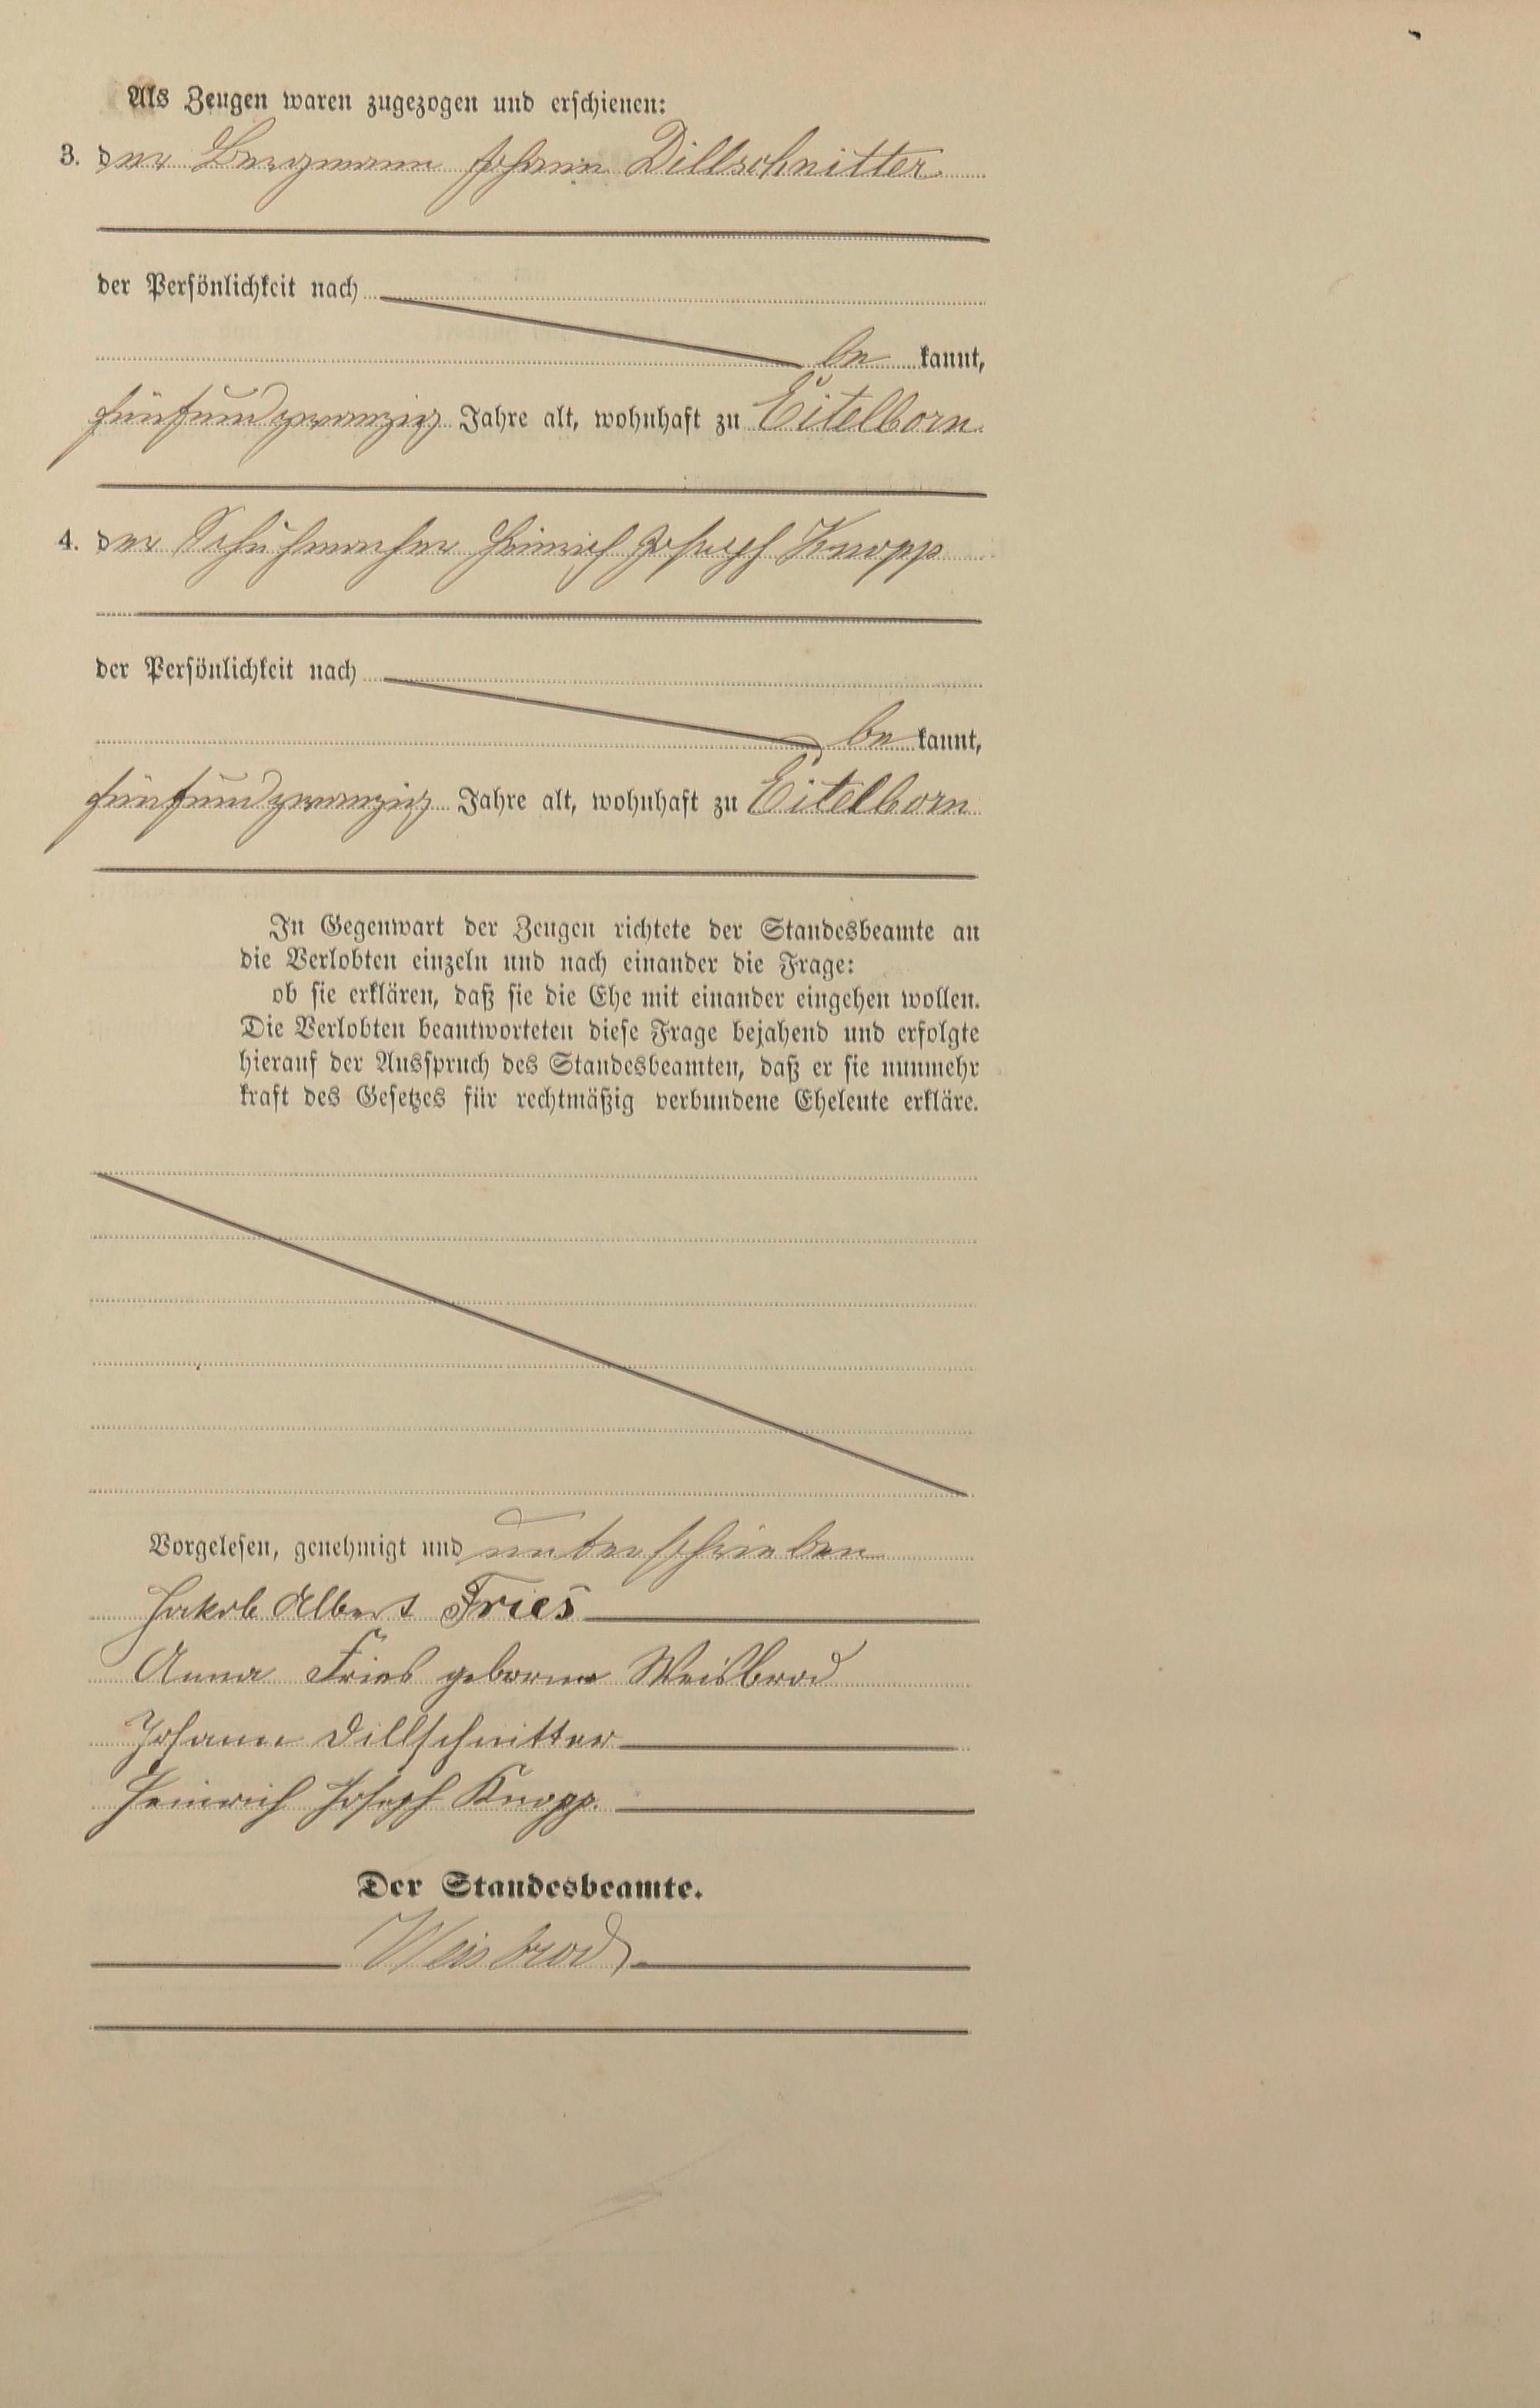 Als Zeugen waren zugezogen und erschienen:
3. der Bergmann Johann Dillschnitter
der Persönlichkeit nach
be kannt,
fünfundzwanzig Jahre alt, wohnhaft zu Eitelborn
4. der Schuhmacher Heinrich Joseph Knopp
der Persönlichkeit nach
be kannt,
fünfundzwanzig Jahre alt, wohnhaft zu Eitelborn
In Gegenwart der Zeugen richtete der Standesbeamte an
die Verlobten einzeln und nach einander die Frage:
ob sie erklären, daß sie die Ehe mit einander eingehen wollen.
Die Verlobten beantworteten diese Frage bejahend und erfolgte
hierauf der Ausspruch des Standesbeamten, daß er sie nunmehr
kraft des Gesetzes für rechtmäßig verbundene Eheleute erkläre.
Vorgelesen, genehmigt und unterschrieben
Jakob Albert Fries
Anna Fries geborne Weisbrod
Johann Dillschnitter
Heinrich Joseph Knopp.
Der Standesbeamte.
Weisbrod